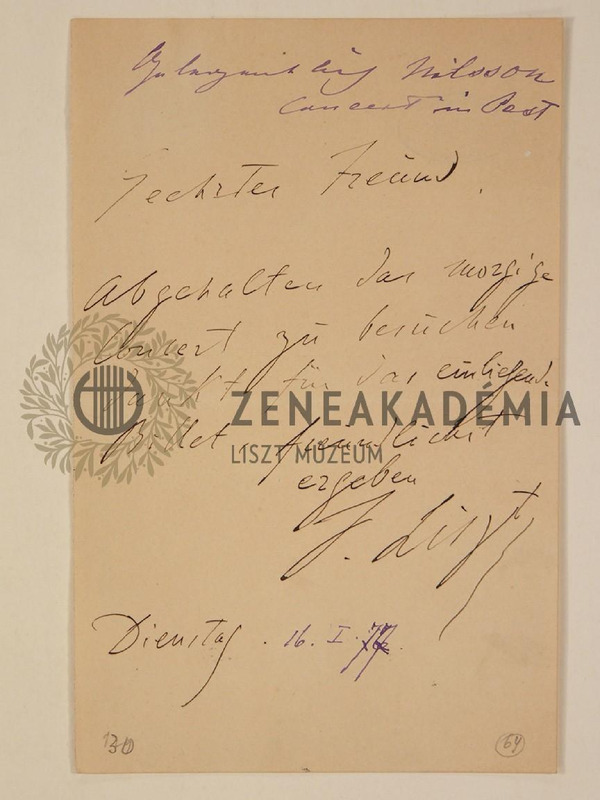 Nilsson
Concert in Pest
Geehrter Freund,
Abgehalten das morgige
Concert zu besuchen
dankt für das einliegende
Billet freundlichst
ergeben
F. Liszt
Dienstag. 16. I. 77.
130
64
ZENEAKADÉMIA
LISZT MÚZEUM